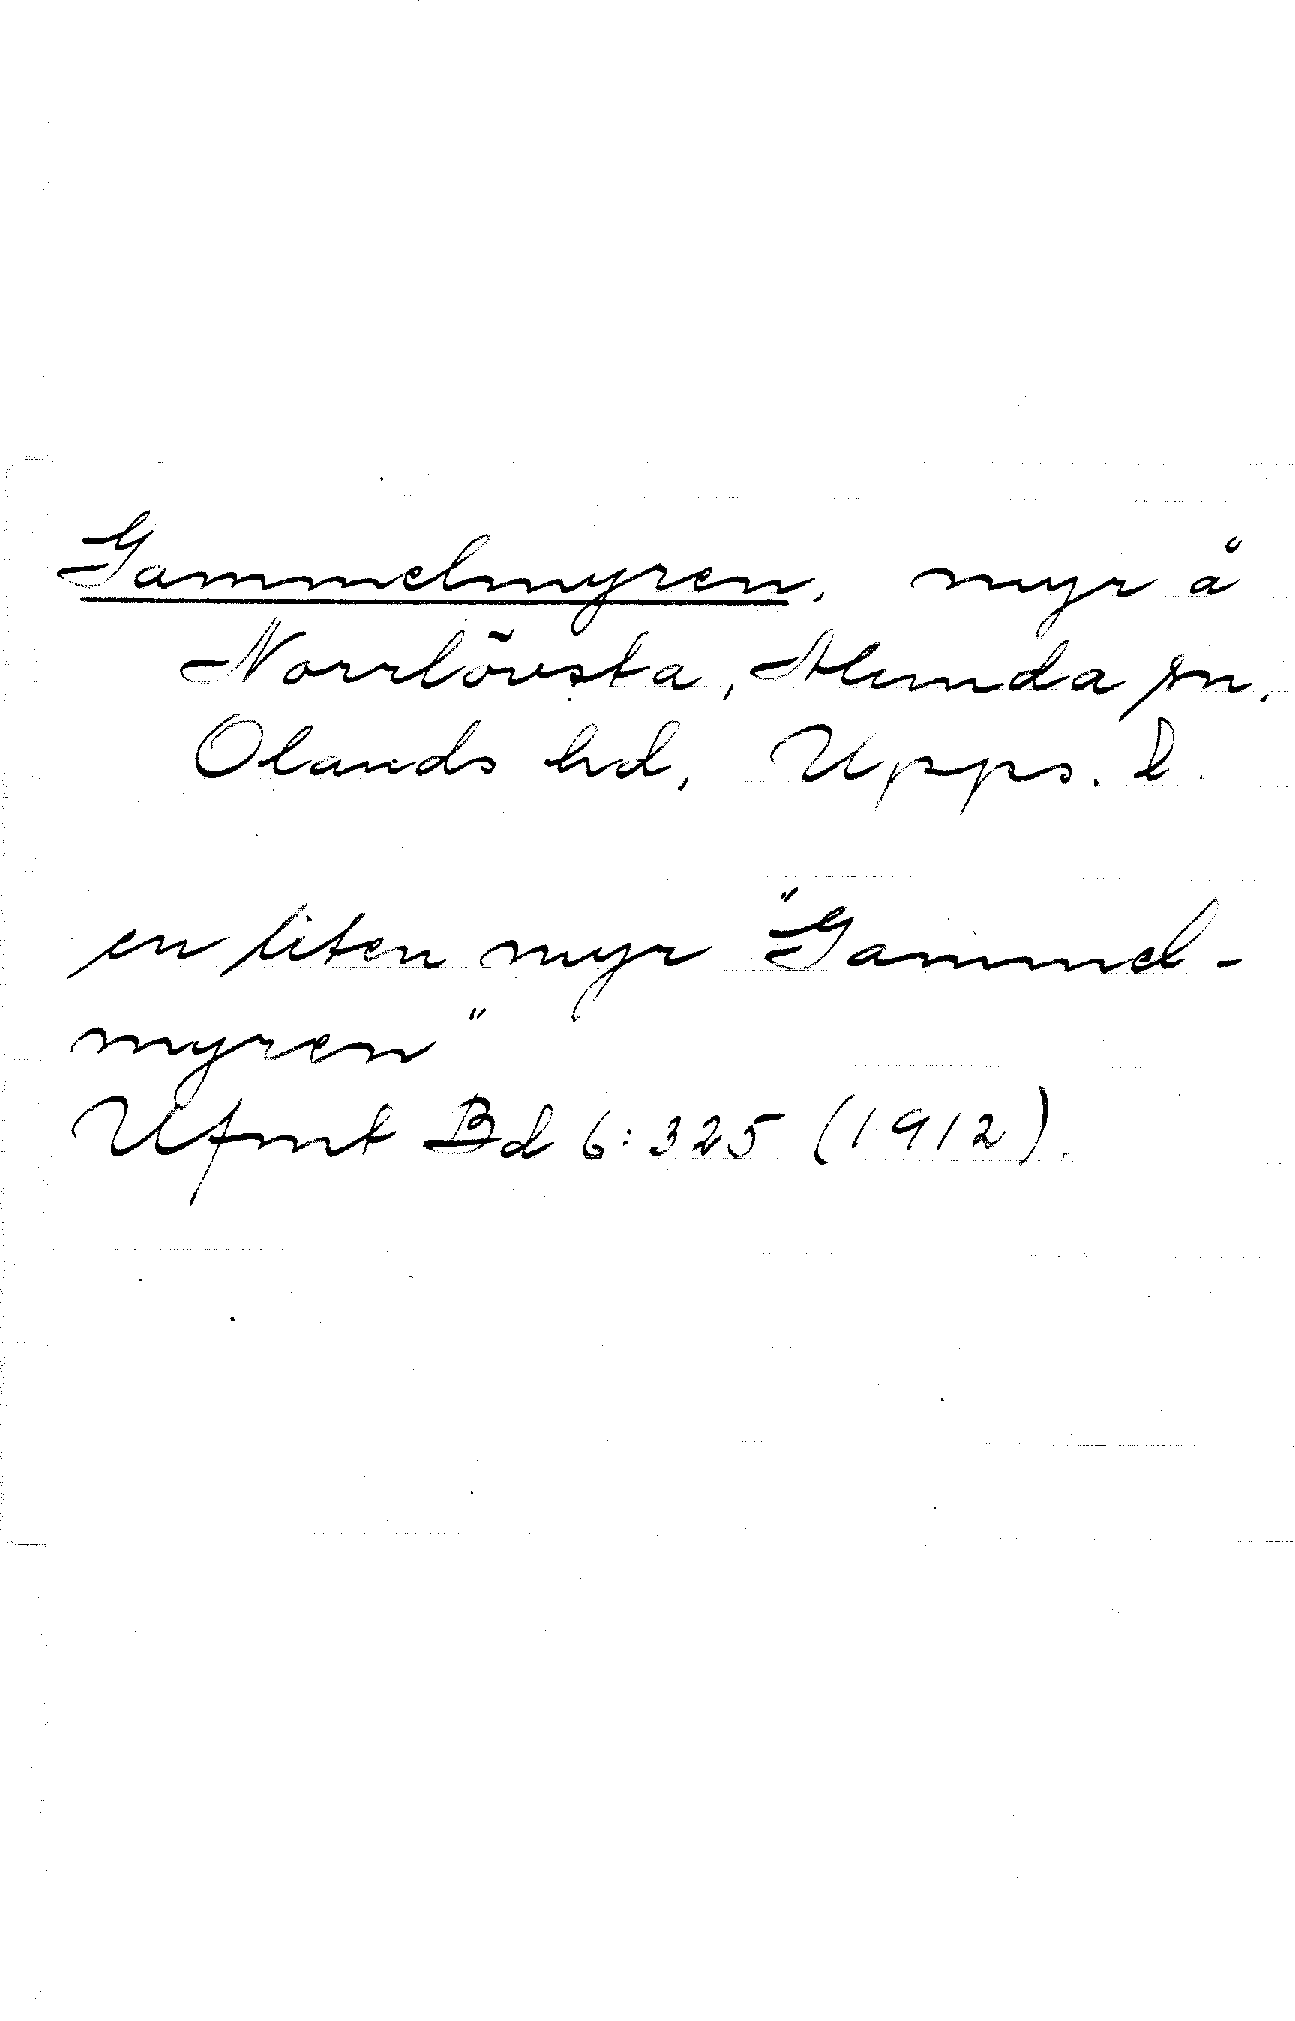 Gammelmyren, myr å
Norrlövsta, Alunda sn.
Olands hd, Upps. l.
en liten myr "Gammel-
myren"
Ufmt Bd 6:325 (1912).